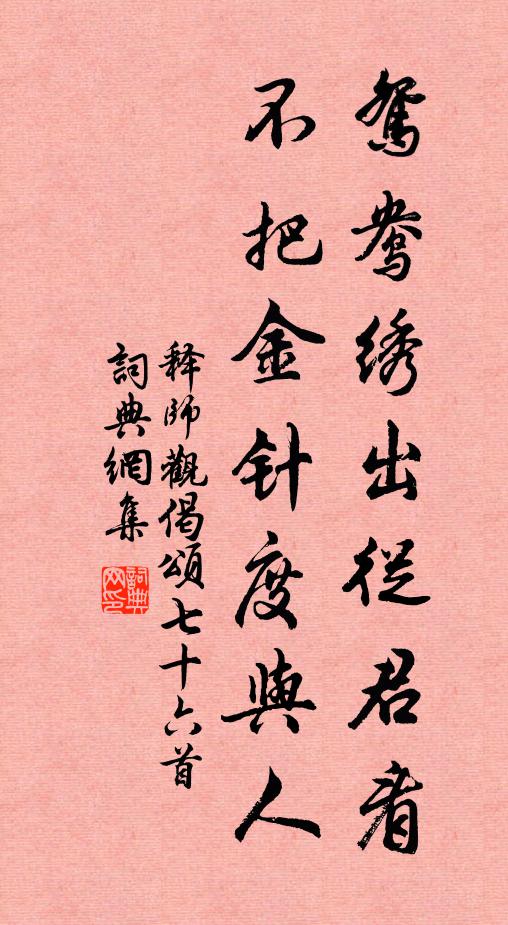 鴛鴦绣出從君看
不把金针度與人
释師觀偈頌七十六首
詞典網集
詞典网印